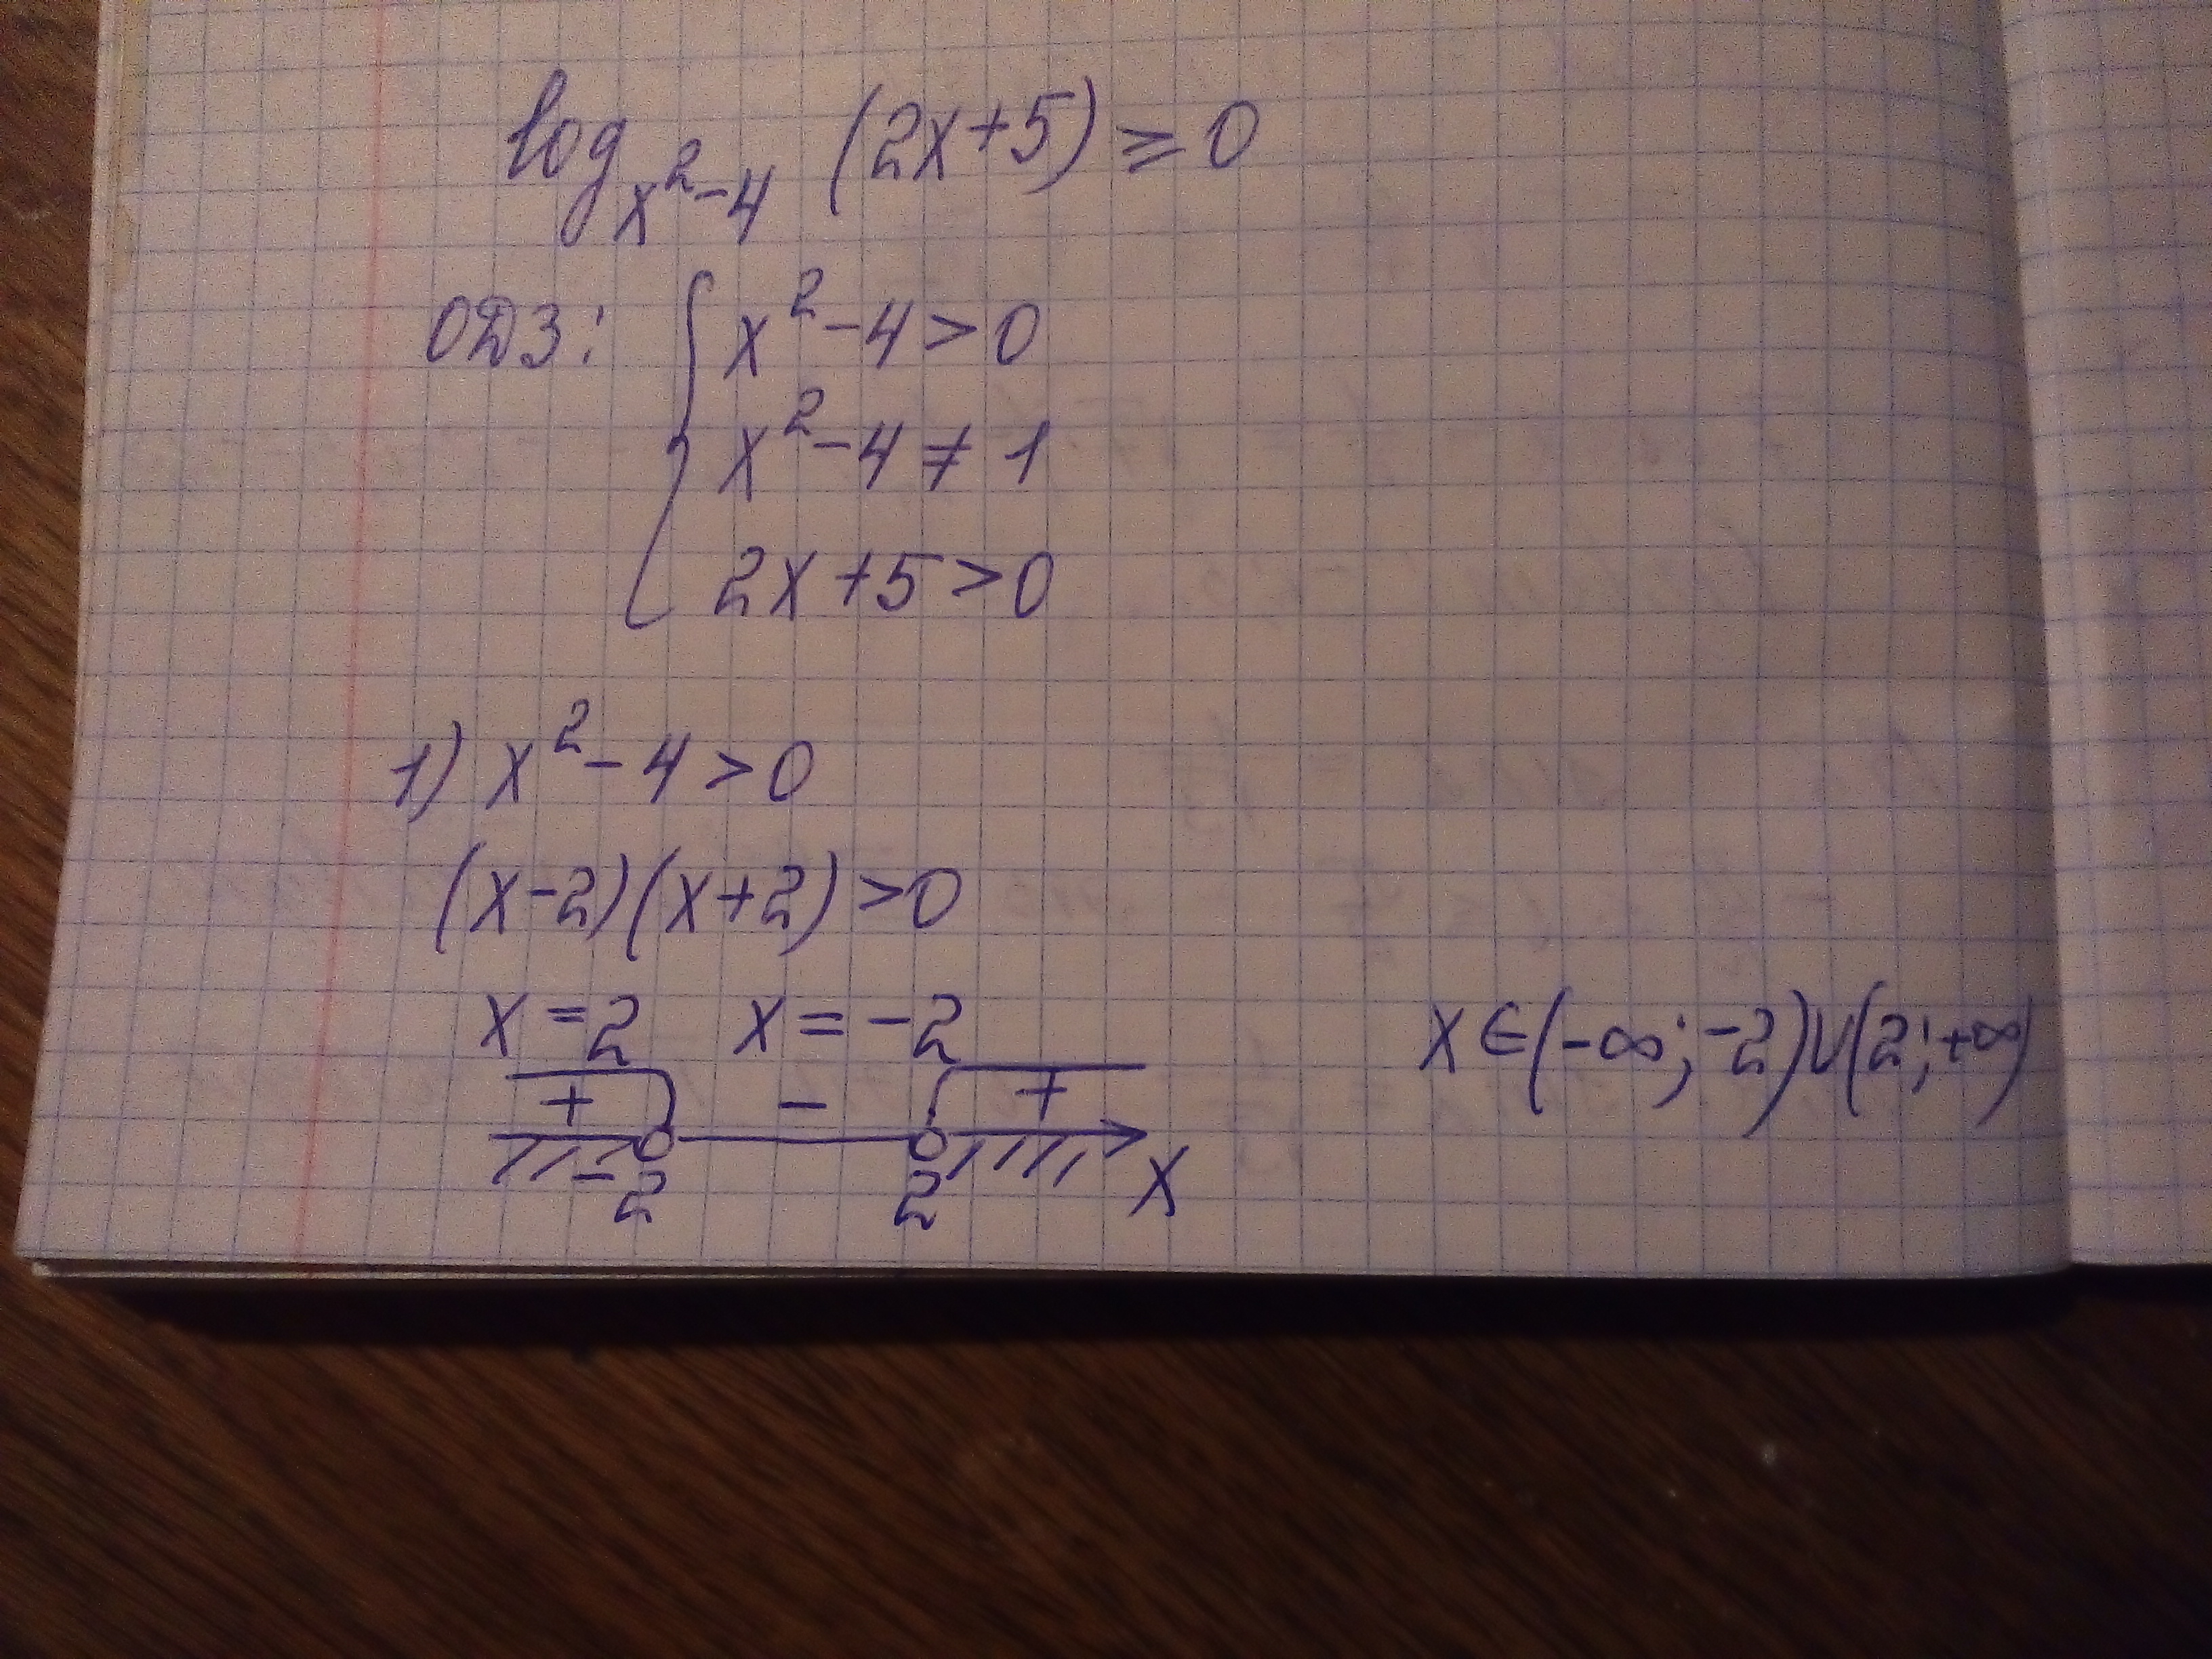 log_{x²-4} (2x+5) ≥ 0
ОДЗ: { x² - 4 > 0
x² - 4 ≠ 1
2x + 5 > 0
1) x² - 4 > 0
(x-2)(x+2) > 0
x = 2 x = -2
+ - +
x ∈ (-∞; -2) ∪ (2; +∞)
-2 2 x